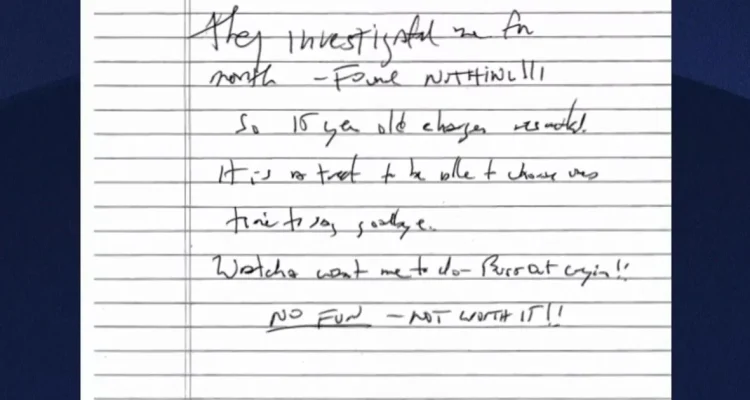 They investigated me for
month — Found NOTHING!!!
So 15 year old charges resulted.
It is a treat to be able to choose ones
time to say goodbye.
Watcha want me to do — Burst out cryin!!
NO FUN — NOT WORTH IT!!